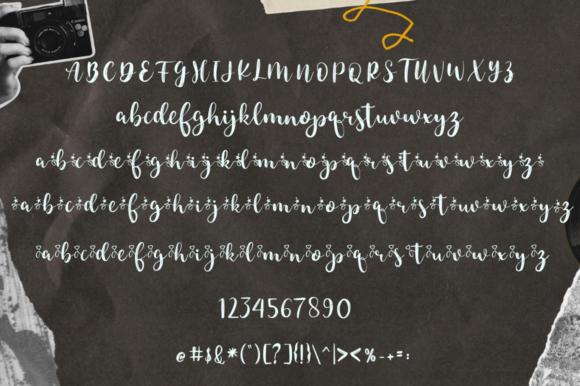 ABCDEFGHIJKLMNOPQRSTUVWXYZ
abcdefghijklmnopqrstuvwxyz
abcdefghijklmnopqrstuvwxyz
abcdefghijklmnopqrstuvwxyz
abcdefghijklmnopqrstuvwxyz
1234567890
@#$&*(")[?]{!}\^|><%-+=: